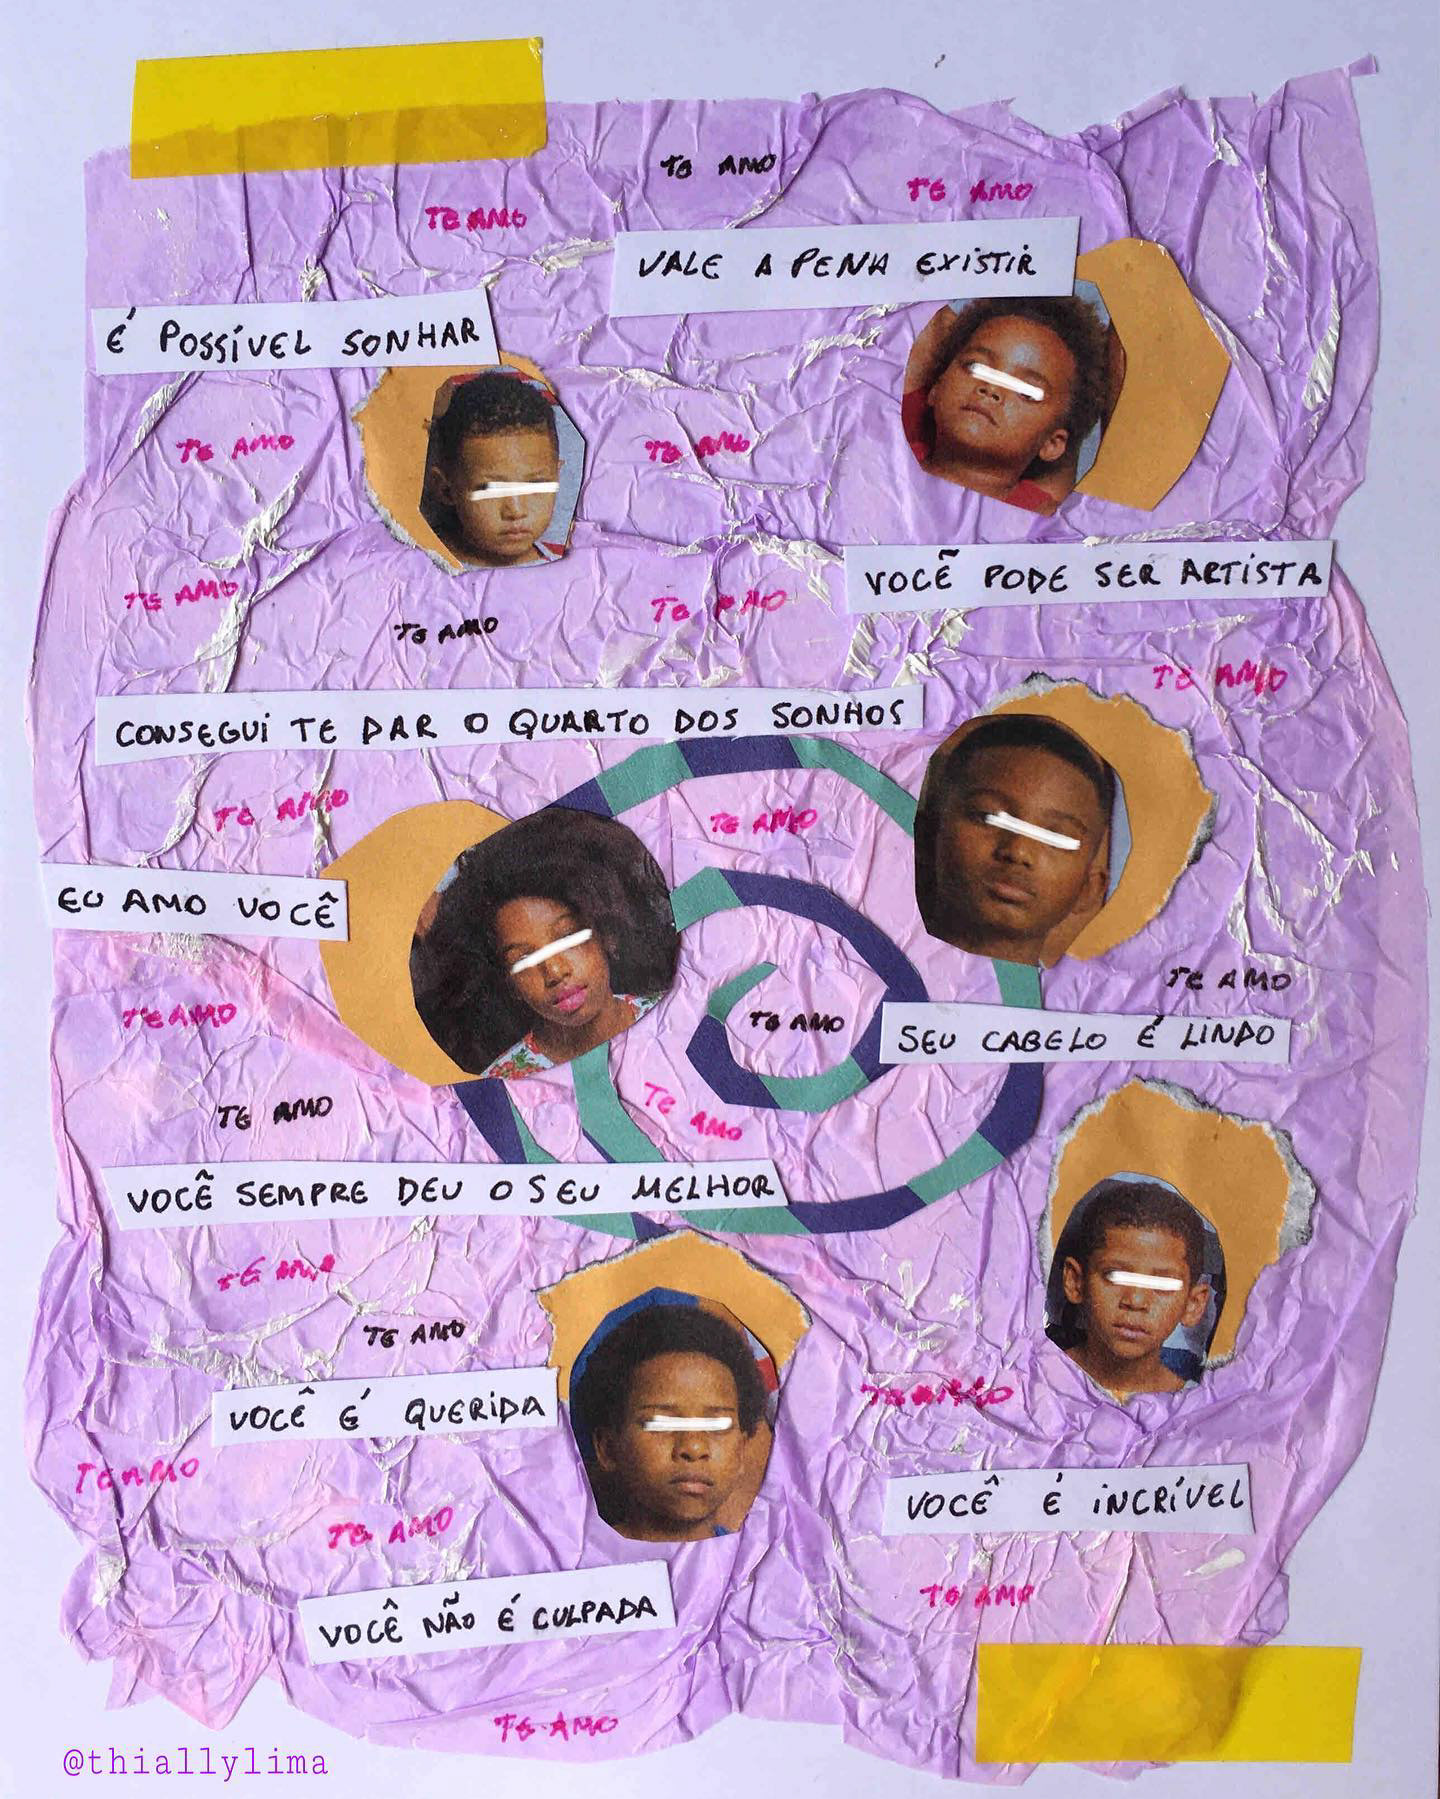 TE AMO
TE AMO
TE AMO
VALE A PENA EXISTIR
É POSSÍVEL SONHAR
TE AMO
TE AMO
VOCÊ PODE SER ARTISTA
TE AMO
TE AMO
TE AMO
TE AMO
CONSEGUI TE DAR O QUARTO DOS SONHOS
TE AMO
TE AMO
EU AMO VOCÊ
TE AMO
TE AMO
TE AMO
SEU CABELO É LINDO
TE AMO
TE AMO
VOCÊ SEMPRE DEU O SEU MELHOR
TE AMO
TE AMO
TE AMO
VOCÊ É QUERIDA
TE AMO
VOCÊ É INCRÍVEL
TE AMO
TE AMO
VOCÊ NÃO É CULPADA
TE AMO
@thiallylima